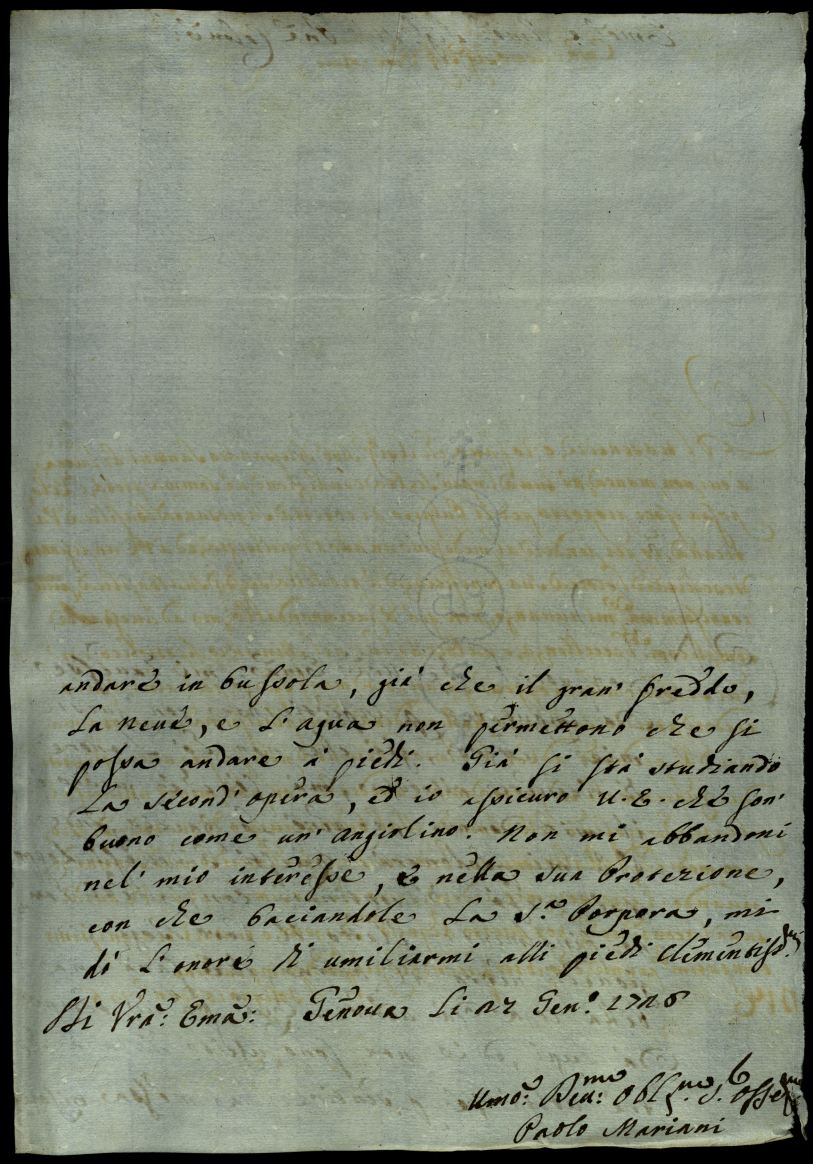 andare in bussola, già che il gran' freddo,
la neve, e l'aqua non permettono che si
possa andare à piedi. Già si stà studiando
la second' opera, ed io assicuro V. E. che son'
buono come un' angiolino. Non mi abbandoni
nel' mio interesse, e nella sua Protezione,
con che baciandole la S.ª Porpora, mi
dò l'onore di umiliarmi alli piedi Clementiss.mi
Di Vrã: Emã: Genova li Gen.º
Umõ: Dev:mo Obl.mo S.
Paolo Mariani